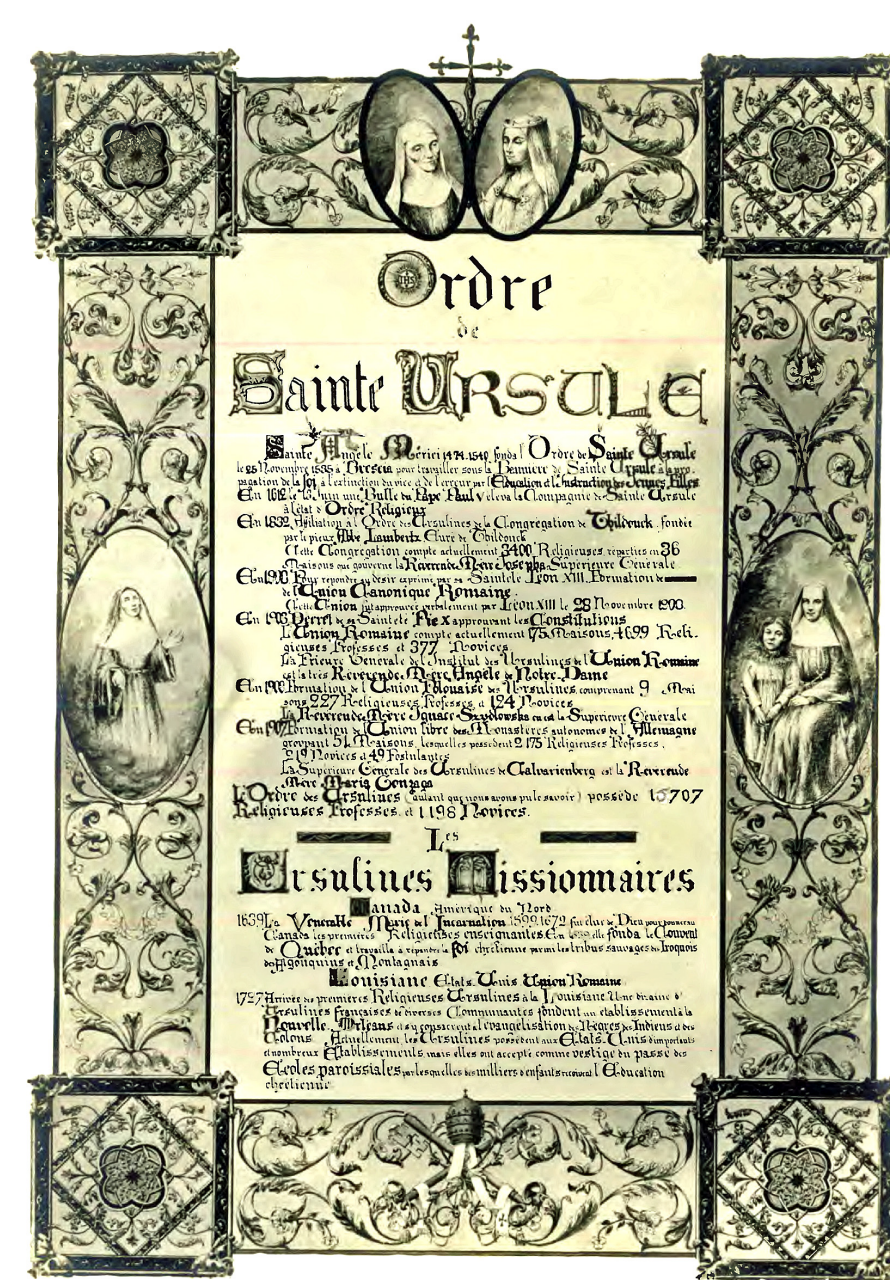 Ordre
de
Sainte URSULE
Sainte Angèle Mérici 1474-1540, fonda l'Ordre de Sainte Ursule
le 25 Novembre 1535 à Brescia pour travailler sous la Bannière de Sainte Ursule à la pro-
pagation de la foi, à l'extinction du vice et de l'erreur par l'Education et l'Instruction des Jeunes Filles
En 1612 le 13 Juin une Bulle du Pape Paul V éleva la Compagnie de Sainte Ursule
à l'état d'Ordre Religieux
En 1832, Affiliation à l'Ordre des Ursulines de la Congrégation de Thildonck, fondée
par le pieux Abbé Lambertz Curé de Thildonck
Cette Congrégation compte actuellement 3400 Religieuses réparties en 36
Maisons que gouverne la Révérende Mère Josepha Supérieure Générale
En 1900 Pour répondre au désir exprimé par sa Sainteté Léon XIII, Formation de
de l'Union Canonique Romaine.
Cette Union fut approuvée verbalement par Léon XIII le 28 Novembre 1900.
En 1903 Décret de sa Sainteté Pie X approuvant les Constitutions
L'Union Romaine compte actuellement 175 Maisons, 4699 Reli-
gieuses Professes et 377 Novices
La Prieure Générale de l'Institut des Ursulines de l'Union Romaine
est la très Révérende Mère Angèle de Notre-Dame
Formation de l'Union Polonaise des Ursulines, comprenant 9 Mai
sons, 227 Religieuses, Professes, et 124 Novices
La Révérende Mère Ignace Szydlowska en est la Supérieure Générale
En 1907 Formation de l'Union libre des Monastères autonomes de l'Allemagne
groupant 51 Maisons, lesquelles possèdent 2175 Religieuses Professes,
219 Novices et 49 Postulantes
La Supérieure Générale des Ursulines de Calvarienberg est la Révérende
Mère Maria Gonzaga
L'Ordre des Ursulines (autant que nous avons pu le savoir) possède 15707
Religieuses Professes, et 1198 Novices.
Les
Ursulines Missionnaires
Canada Amérique du Nord
1639 La Vénérable Marie de l'Incarnation 1599-1672 fut élue de Dieu pour
Canada les premières Religieuses enseignantes. En fonda le Couvent
de Québec et travailla à répandre la foi chrétienne parmi les tribus sauvages des Iroquois
des Algonquins et Montagnais
Louisiane Etats-Unis Union Romaine
1727 Arrivée des premières Religieuses Ursulines à la Louisiane Une dizaine d'
Ursulines Françaises de diverses Communautés fondent un établissement à la
Nouvelle Orléans et s'y consacrent à l'évangélisation des Nègres des Indiens et des
Colons Actuellement les Ursulines possèdent aux Etats-Unis d'importants
et nombreux Etablissements mais elles ont accepté comme vestige du passé des
Ecoles paroissiales par lesquelles des milliers d'enfants reçoivent l'Education
chrétienne